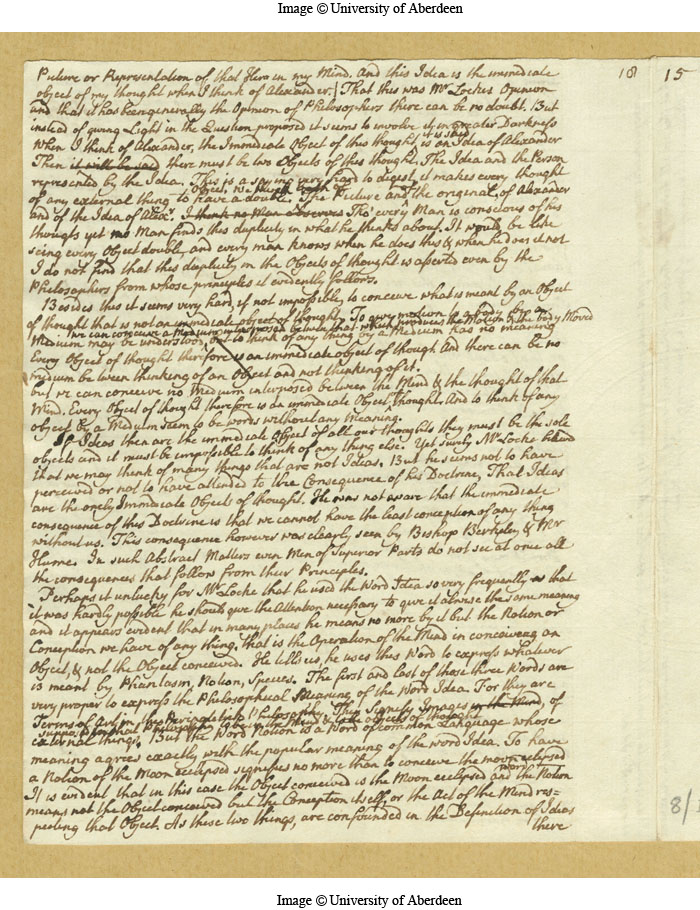 Image © University of Aberdeen
18 15
Picture or Representation of that Hero in my Mind. And this Idea is the immediate
object of my thought when I think of Alexander. That this was Mr Lockes Opinion
and that it has been generally the Opinion of Philosophers there can be no doubt. But
instead of giving Light in the Question proposed it seems to involve it in greater Darkness
When I think of Alexander, the Immediate Object of this thought, it is said, is an Idea of Alexander
Then it will be said there must be two Objects of this thought, The Idea and the Person
represented by the Idea. This is a saying very hard to digest, it makes every thought
of any external thing to have a double Object, The Picture and the original, of Alexander
and of the Idea of Alexr. I think no Man observes Tho' every Man is conscious of his
thougts yet no Man finds this duplicity in what he thinks about. It would be like
seing every Object double, and every man knows when he does this & when he does it not
I do not find that this duplicity in the Objects of thought is asserted even by the
Philosophers from whose principles it evidently follows.
Besides this it seems very hard, if not impossible, to conceive what is meant by an Object
of thought that is not an immediate object of thought. To give motion to a body by a
Medium may be understood, for we can conceive a Medium interposed between that which produces the Motion & the Body Moved
but to think of any thing by a Medium has no meaning
Every Object of thought therefore is an immediate object of though And there can be no
medium be tween thinking of an Object and not thinking of it.
but we can conceive no Medium interposed between the Mind & the thought of that
Mind. Every Object of thought therefore is an immediate Object of thought. And to think of any
object by a Medium seem to be words without any Meaning.
If Ideas then are the immediate Object of all our thoughts they must be the sole
objects and it must be impossible to think of any thing else. Yet surely Mr Locke believd
that we may think of many things that are not Ideas. But he seems not to have
perceived or not to have attended to the Consequence of his Doctrine, That Ideas
are the onely Immediate Objects of thought. He was not aware that the immediate
consequence of this Doctrine is that we cannot have the least conception of any thing
without us. This consequence however was clearly seen by Bishop Berkeley & Mr
Hume. In such Abstract Matters even Men of Superior Parts do not see at once all
the consequences that follow from their Principles.
Perhaps it unlucky for Mr Locke that he used the Word Idea so very frequently as that
it was hardly possible he should give the Attention necessary to give it always the same meaning
and it appears evident that in many places he means no more by it but the Notion or
Conception we have of any thing, that is the Operation of the Mind in conceiveing an
Object, & not the Object conceived. He tells us, he uses this Word to express whatever
is meant by Phantasm, Notion, Species. The first and last of these three Words are
very proper to express the Philosophical Meaning of the Word Idea. For they are
Terms of Art in the Peripatetick Philosophy, They signify Images in the Mind, of
external things, supposed in that Philosophy to be in the Mind & to be objects of thought. But the Word Notion is a Word of common Language whose
meaning agrees exactly with the popular meaning of the word Idea. To have
a Notion of the Moon eclipsed signifies no more than to conceive the moon eclipsed
It is evident that in this case the Object conceived is the Moon eclipsed and the word Notion
means not the Object conceived but the Conception itself, or the act of the Mind res=
pecting that Object. As these two things, are confounded in the Definition of Ideas
there
8/
Image © University of Aberdeen